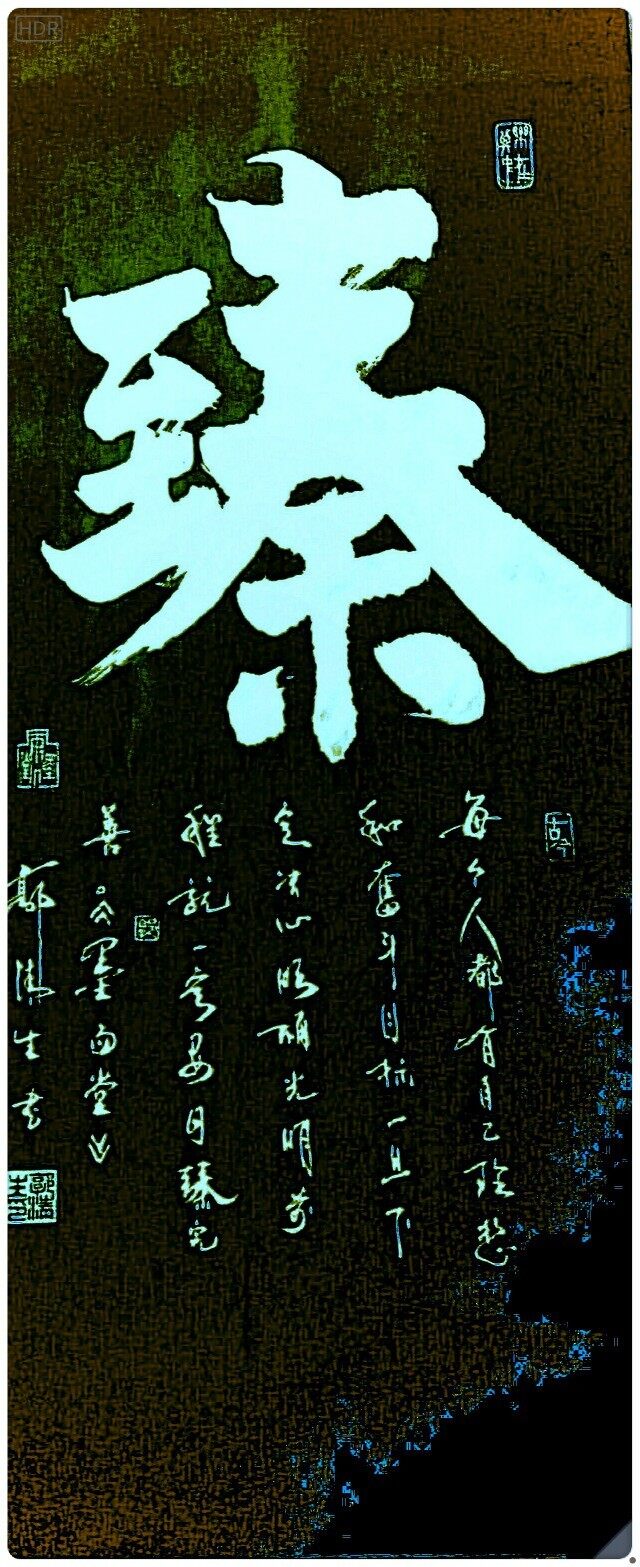 HDR
臻
每个人都有自己理想
和奮斗目标一旦下
定决心光明前
程就一定要日臻完
善墨雨堂
郭清生书